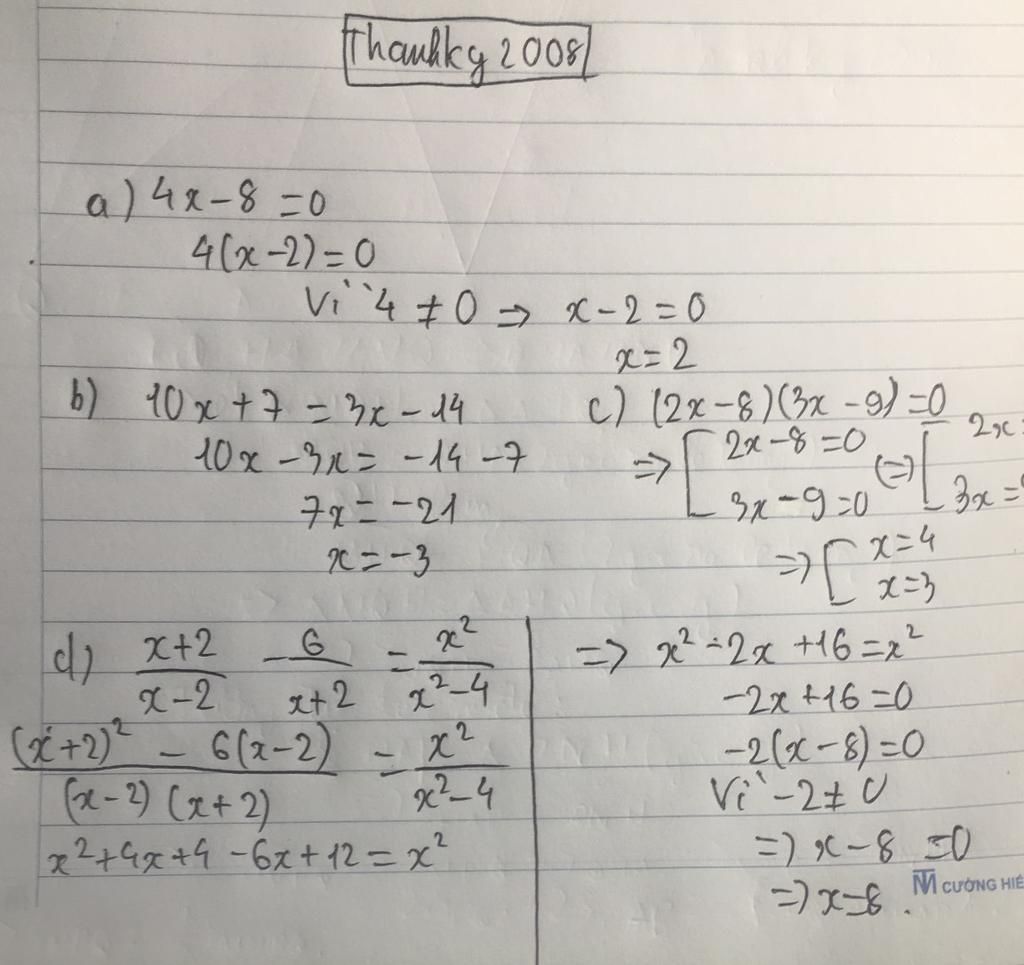 Thanhkg 2008
a) 4x - 8 = 0
4(x - 2) = 0
Vì 4 ≠ 0 => x - 2 = 0
x = 2
b) 10x + 7 = 3x - 14
10x - 3x = -14 - 7
7x = -21
x = -3
c) (2x - 8)(3x - 9) = 0
=> [ 2x - 8 = 0 (=) [ 2x =
3x - 9 = 0 3x =
=> [ x = 4
x = 3
d) (x+2)/(x-2) - 6/(x+2) = x²/(x²-4)
((x+2)² - 6(x-2))/((x-2)(x+2)) = x²/(x²-4)
x² + 4x + 4 - 6x + 12 = x²
=> x² - 2x + 16 = x²
-2x + 16 = 0
-2(x - 8) = 0
Vì -2 ≠ 0
=> x - 8 = 0
=> x = 8.
TM CƯỜNG HIẾ